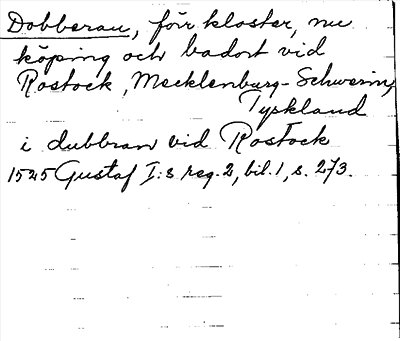 Dobberan, förr kloster, nu
köping och badort vid
Rostock, Mecklenburg-Schwerin,
Tyskland
i dubbran vid Rostock
1525 Gustaf I:s reg. 2, bil. 1, s. 273.